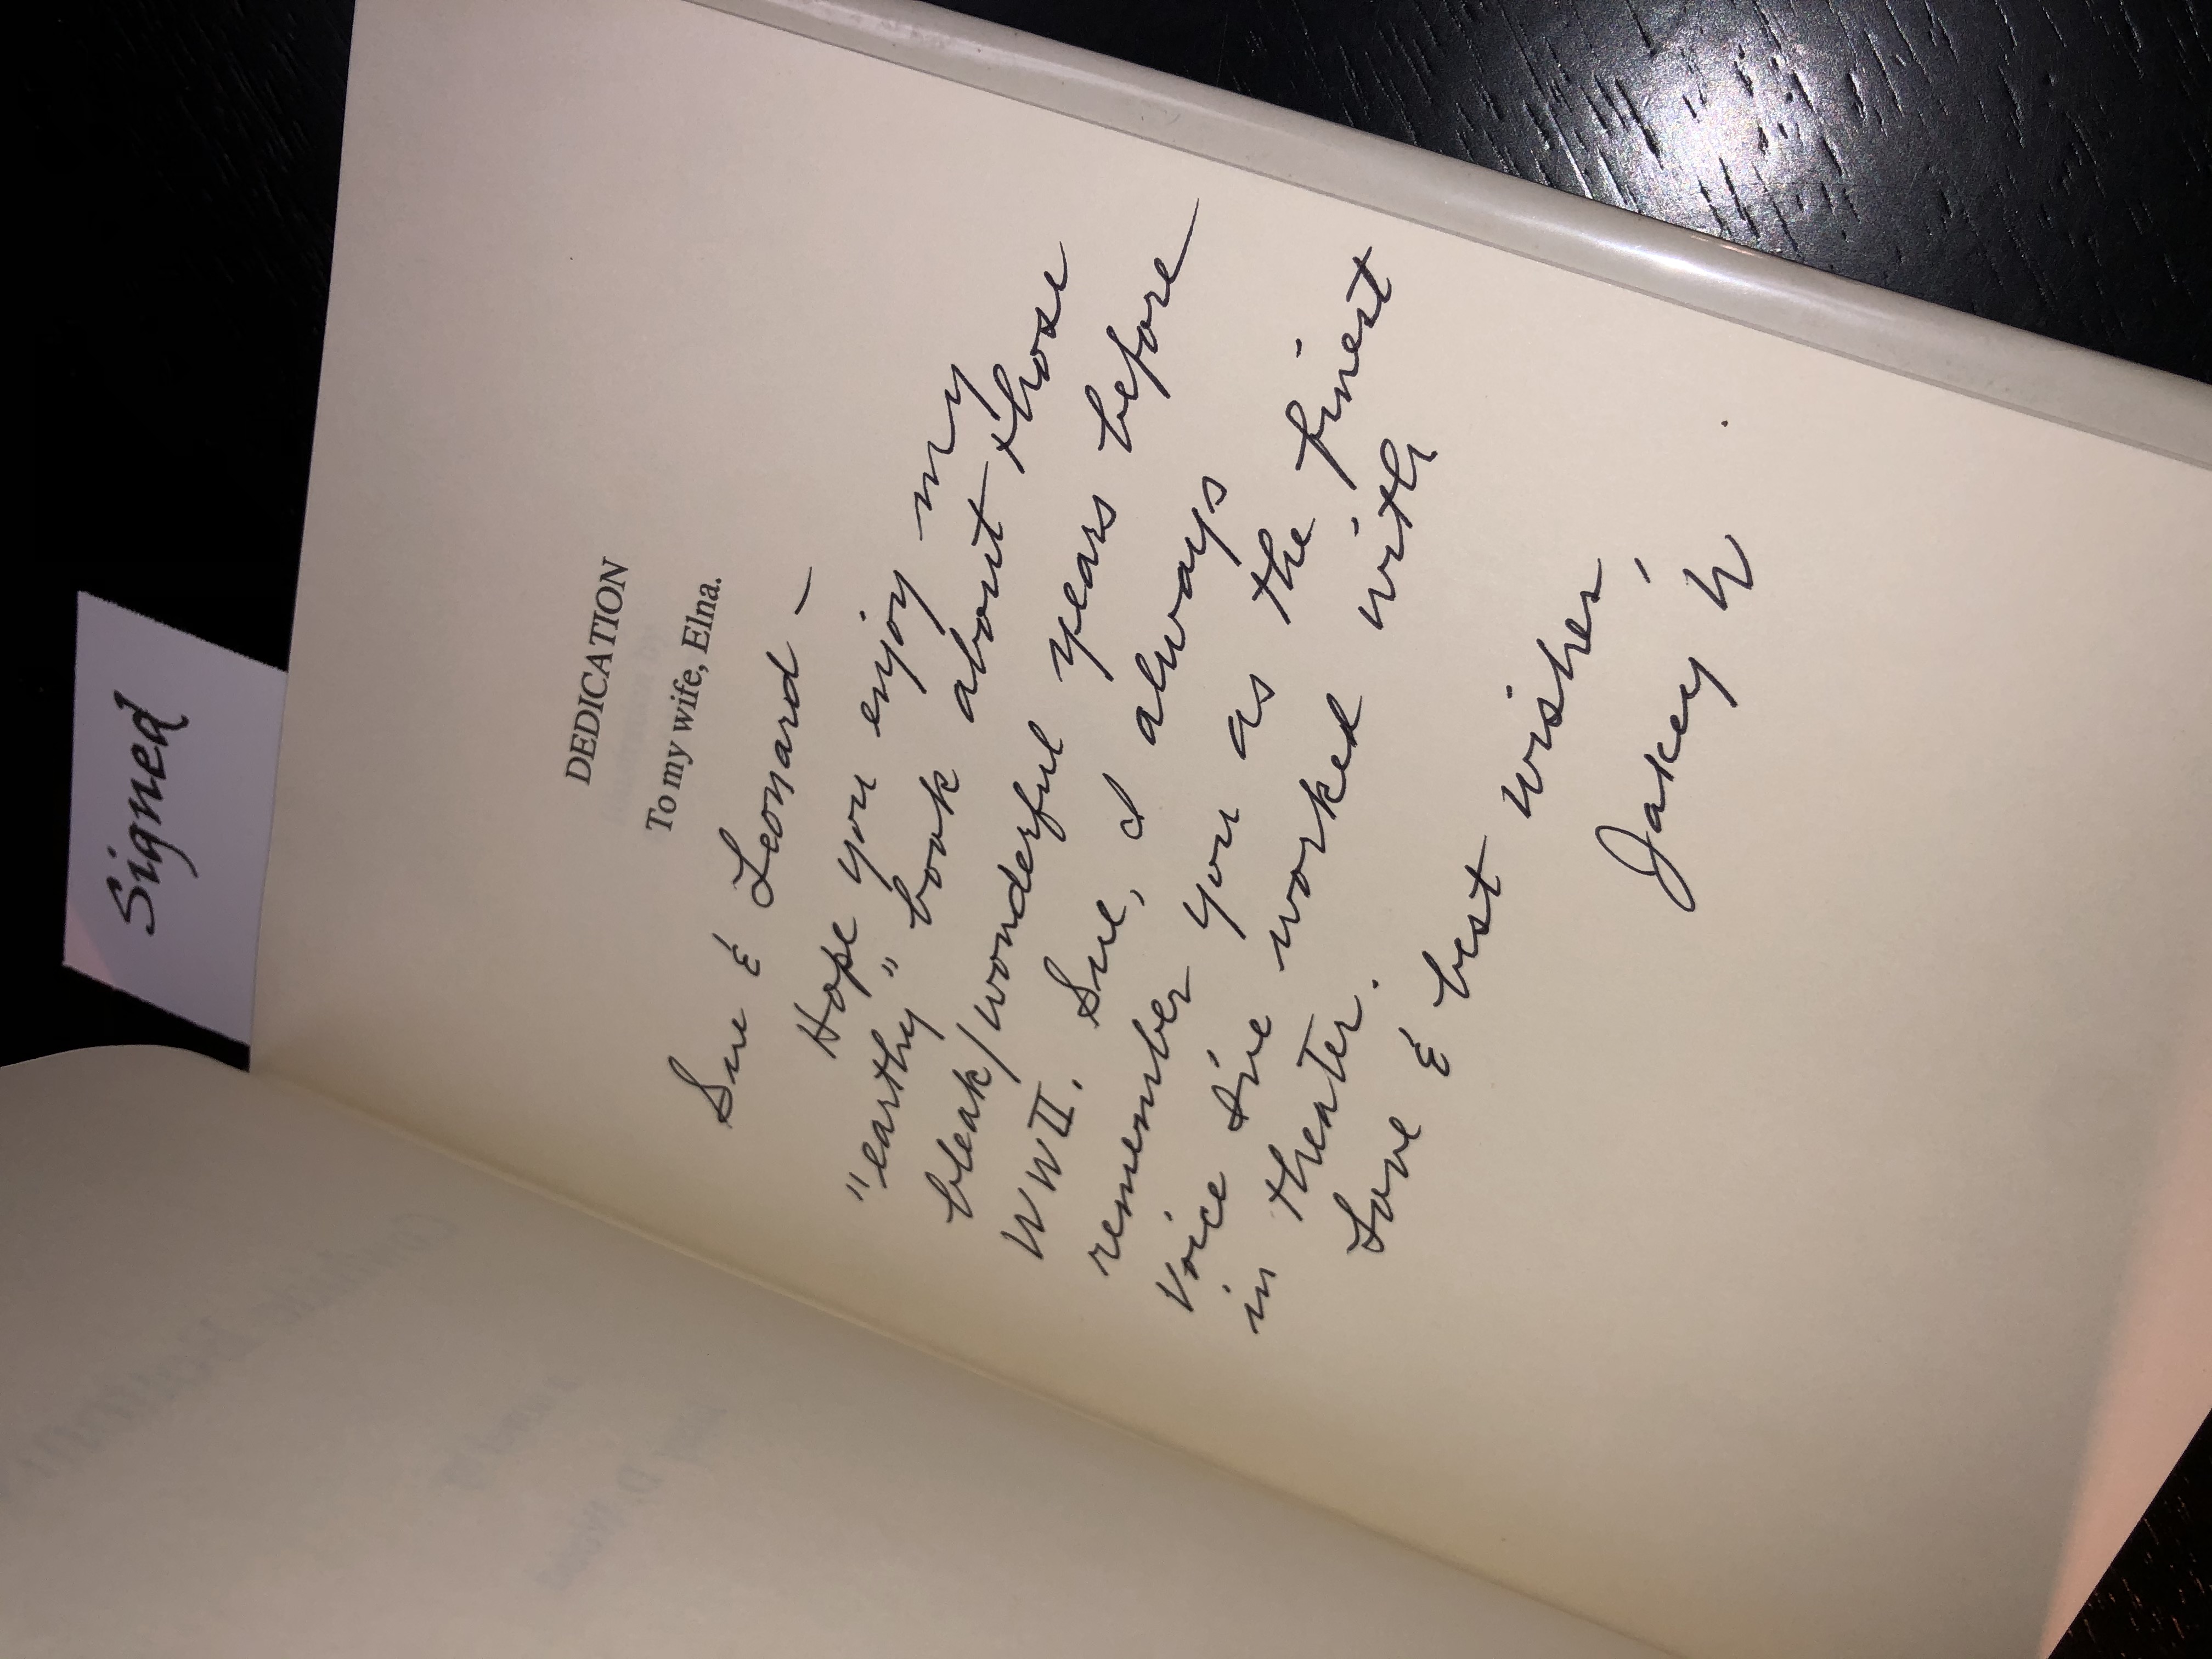 Signed
DEDICATION
To my wife, Elna.
Sue & Leonard —
Hope you enjoy my
"earthy" book about those
bleak/wonderful years before
WWII. Sue, I always
remember you as the finest
voice I've worked with
in theater.
Love & best wishes,
Jakey W